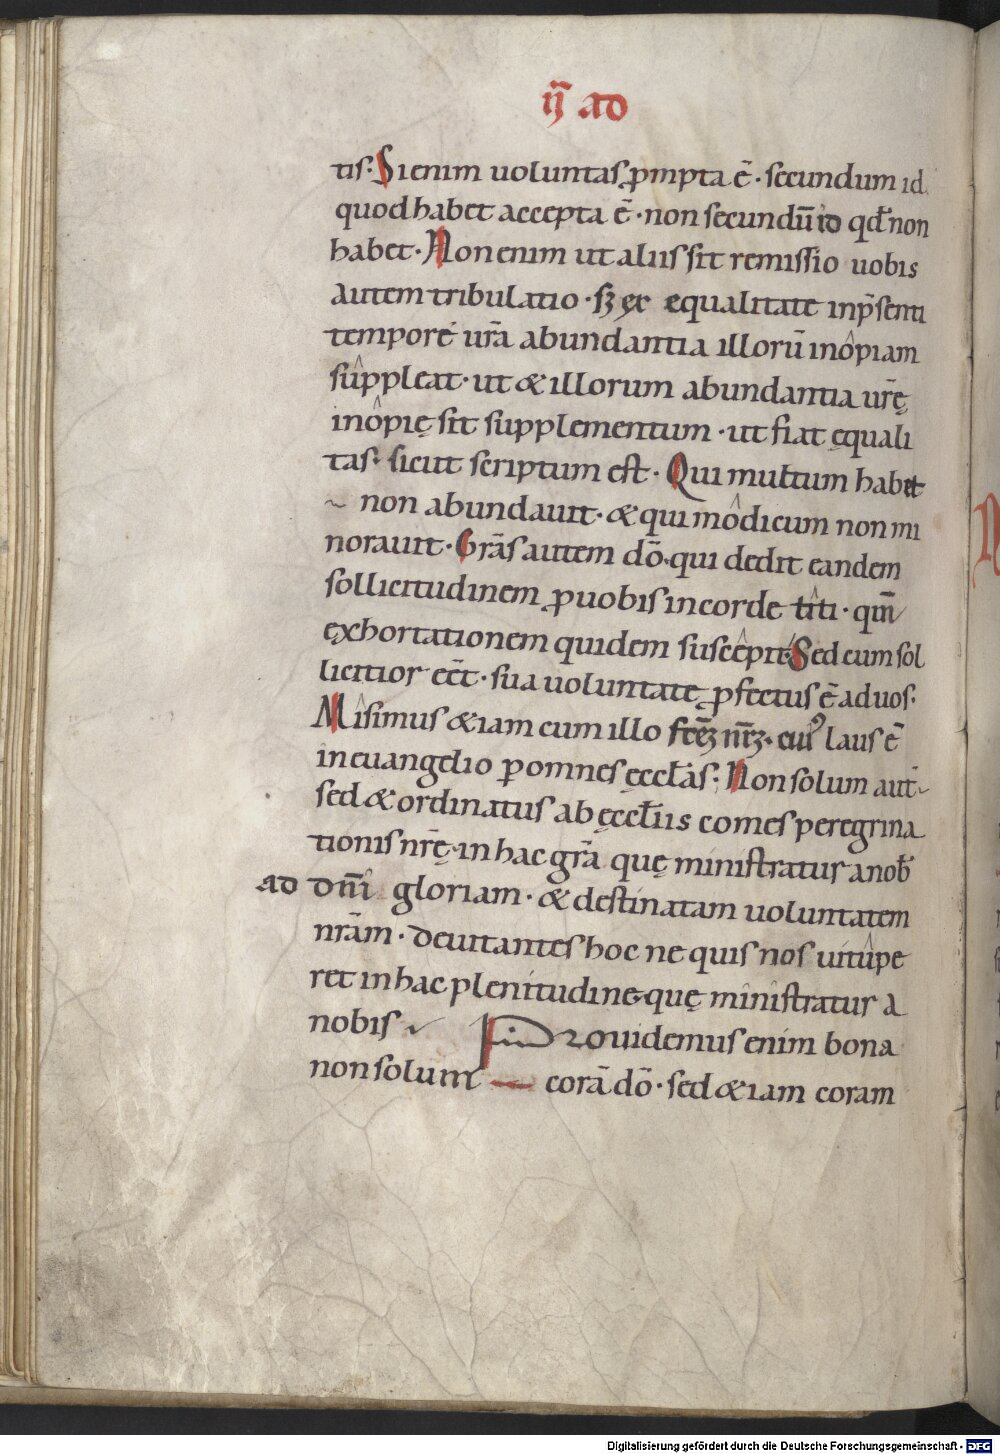 ij̃ ad
tis· Si enim uoluntas ꝓmpta ẽ· secundum id
quod habet accepta ẽ· non secundũ id qđ non
habet· Non enim ut aliis sit remissio uobis
autem tribulatio· sꝫ ex equalitate in p̃senti
tempore ur̃a abundantia illorũ inôpiam
sûppleat· ut & illorum abundantia ur̃ę
inôpię sit supplementum· ut fiat ęquali
tas· sicut scriptum est· Qui multum habet
non abundauit· & qui môdicum non mi
norauit· Gr̃as autem dõ· qui dedit eandem
sollicitudinem ꝓ uobis in corde tîti· qm̃
ęxhortationem quidem suscêpit· Sed cum sol
licitior eẽt· sua uoluntate ꝓfectus ẽ ad uos·
Mîsimus & iam cum illo fr̃eꝫ nr̃ꝫ· cuiꝰ laus ẽ
in euangelio ꝑ omnes ęccl̃as· Non solum aut̃
sed & ordinatus ab ęccl̃iis comes peregrina
tionis nr̃ę· in hac gr̃a quę ministratur a nob̃
ad dñi gloriam· & destinatam uoluntatem
nr̃am· deuitantes hoc ne quis nos uitûpe
ret in hac plenitudine· quę ministratur a
nobis Prouidemus enim bona
non solum corã dõ· sed & iam coram
Digitalisierung gefördert durch die Deutsche Forschungsgemeinschaft - DFG